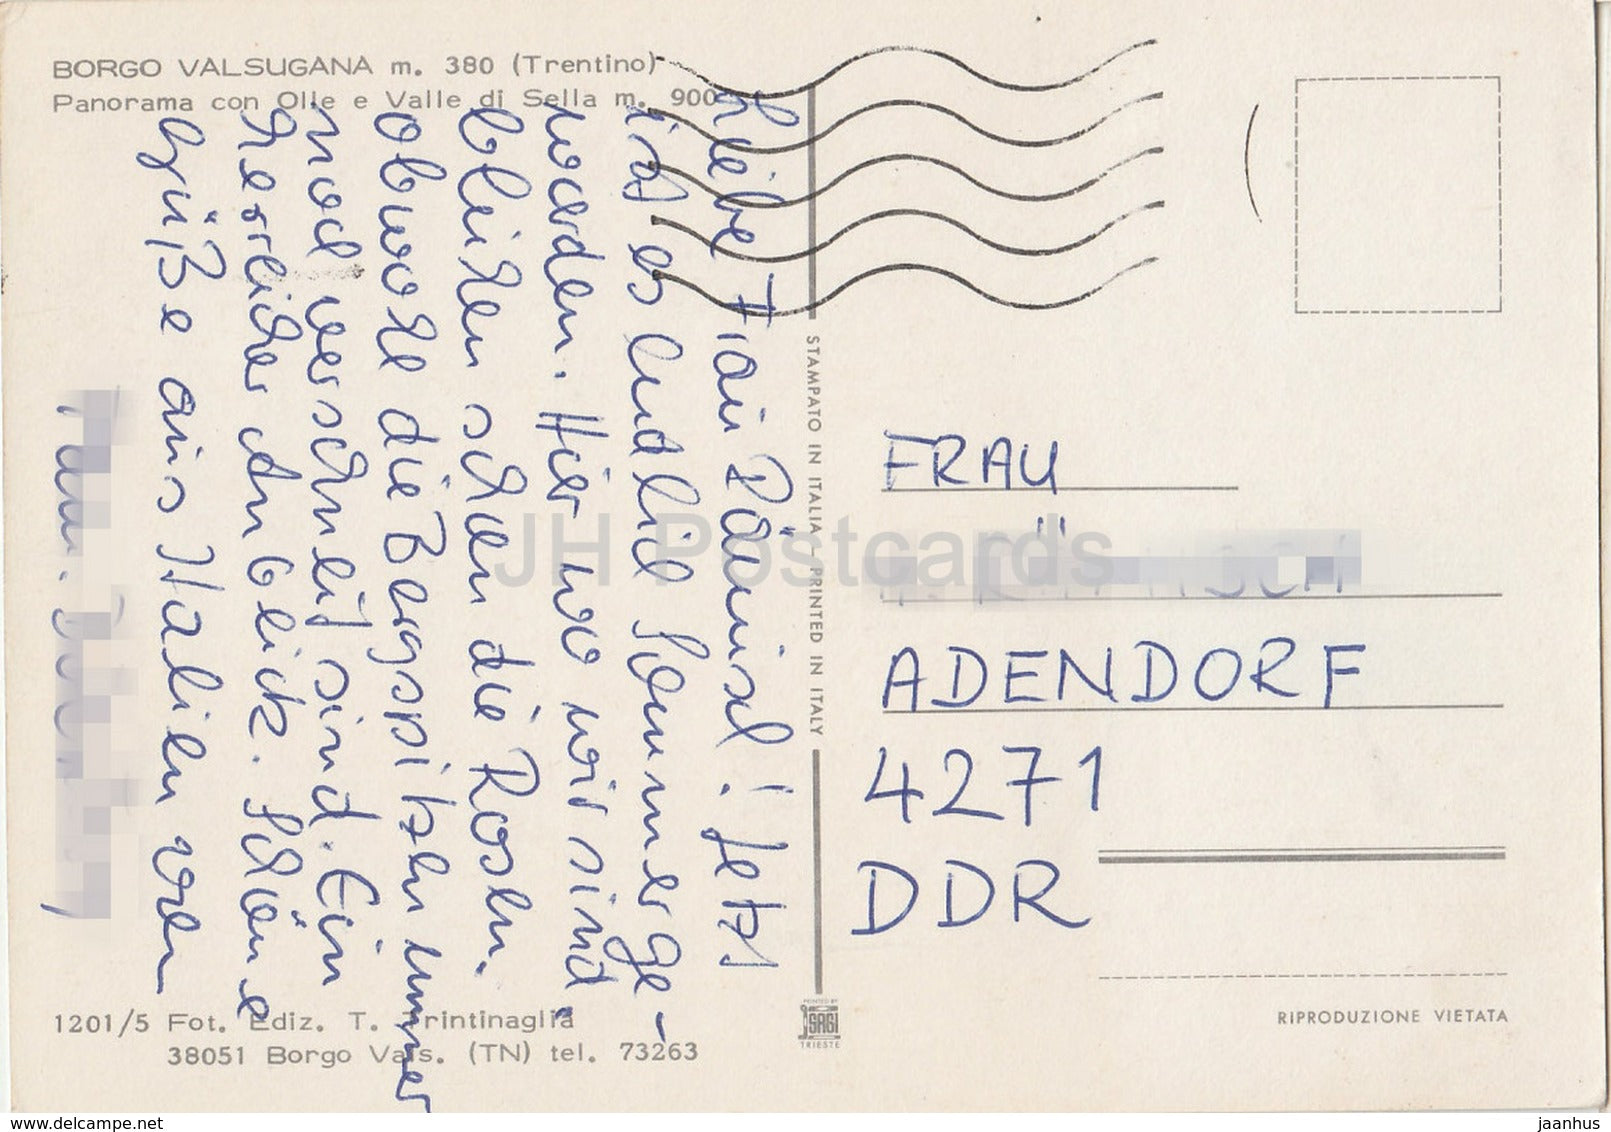 BORGO VALSUGANA m. 380 (Trentino)
Panorama con Olle e Valle di Sella m. 900
Liebe Frau! Jetzt
ist es endlich Sommer ge-
worden. Hier wo wir sind,
blühen schon die Rosen.
obwohl die Bergspitzen immer
noch verschneit sind. Ein
herrlicher Anblick. Schöne
Grüße aus Italien von
STAMPATO IN ITALIA - PRINTED IN ITALY
FRAU
ADENDORF
4271
DDR
JH Postcards
1201/5 Fot. Ediz. T. Trintinaglia
38051 Borgo Vals. (TN) tel. 73263
PRINTED BY
SAGI
TRIESTE
RIPRODUZIONE VIETATA
www.delcampe.net
jaanhus